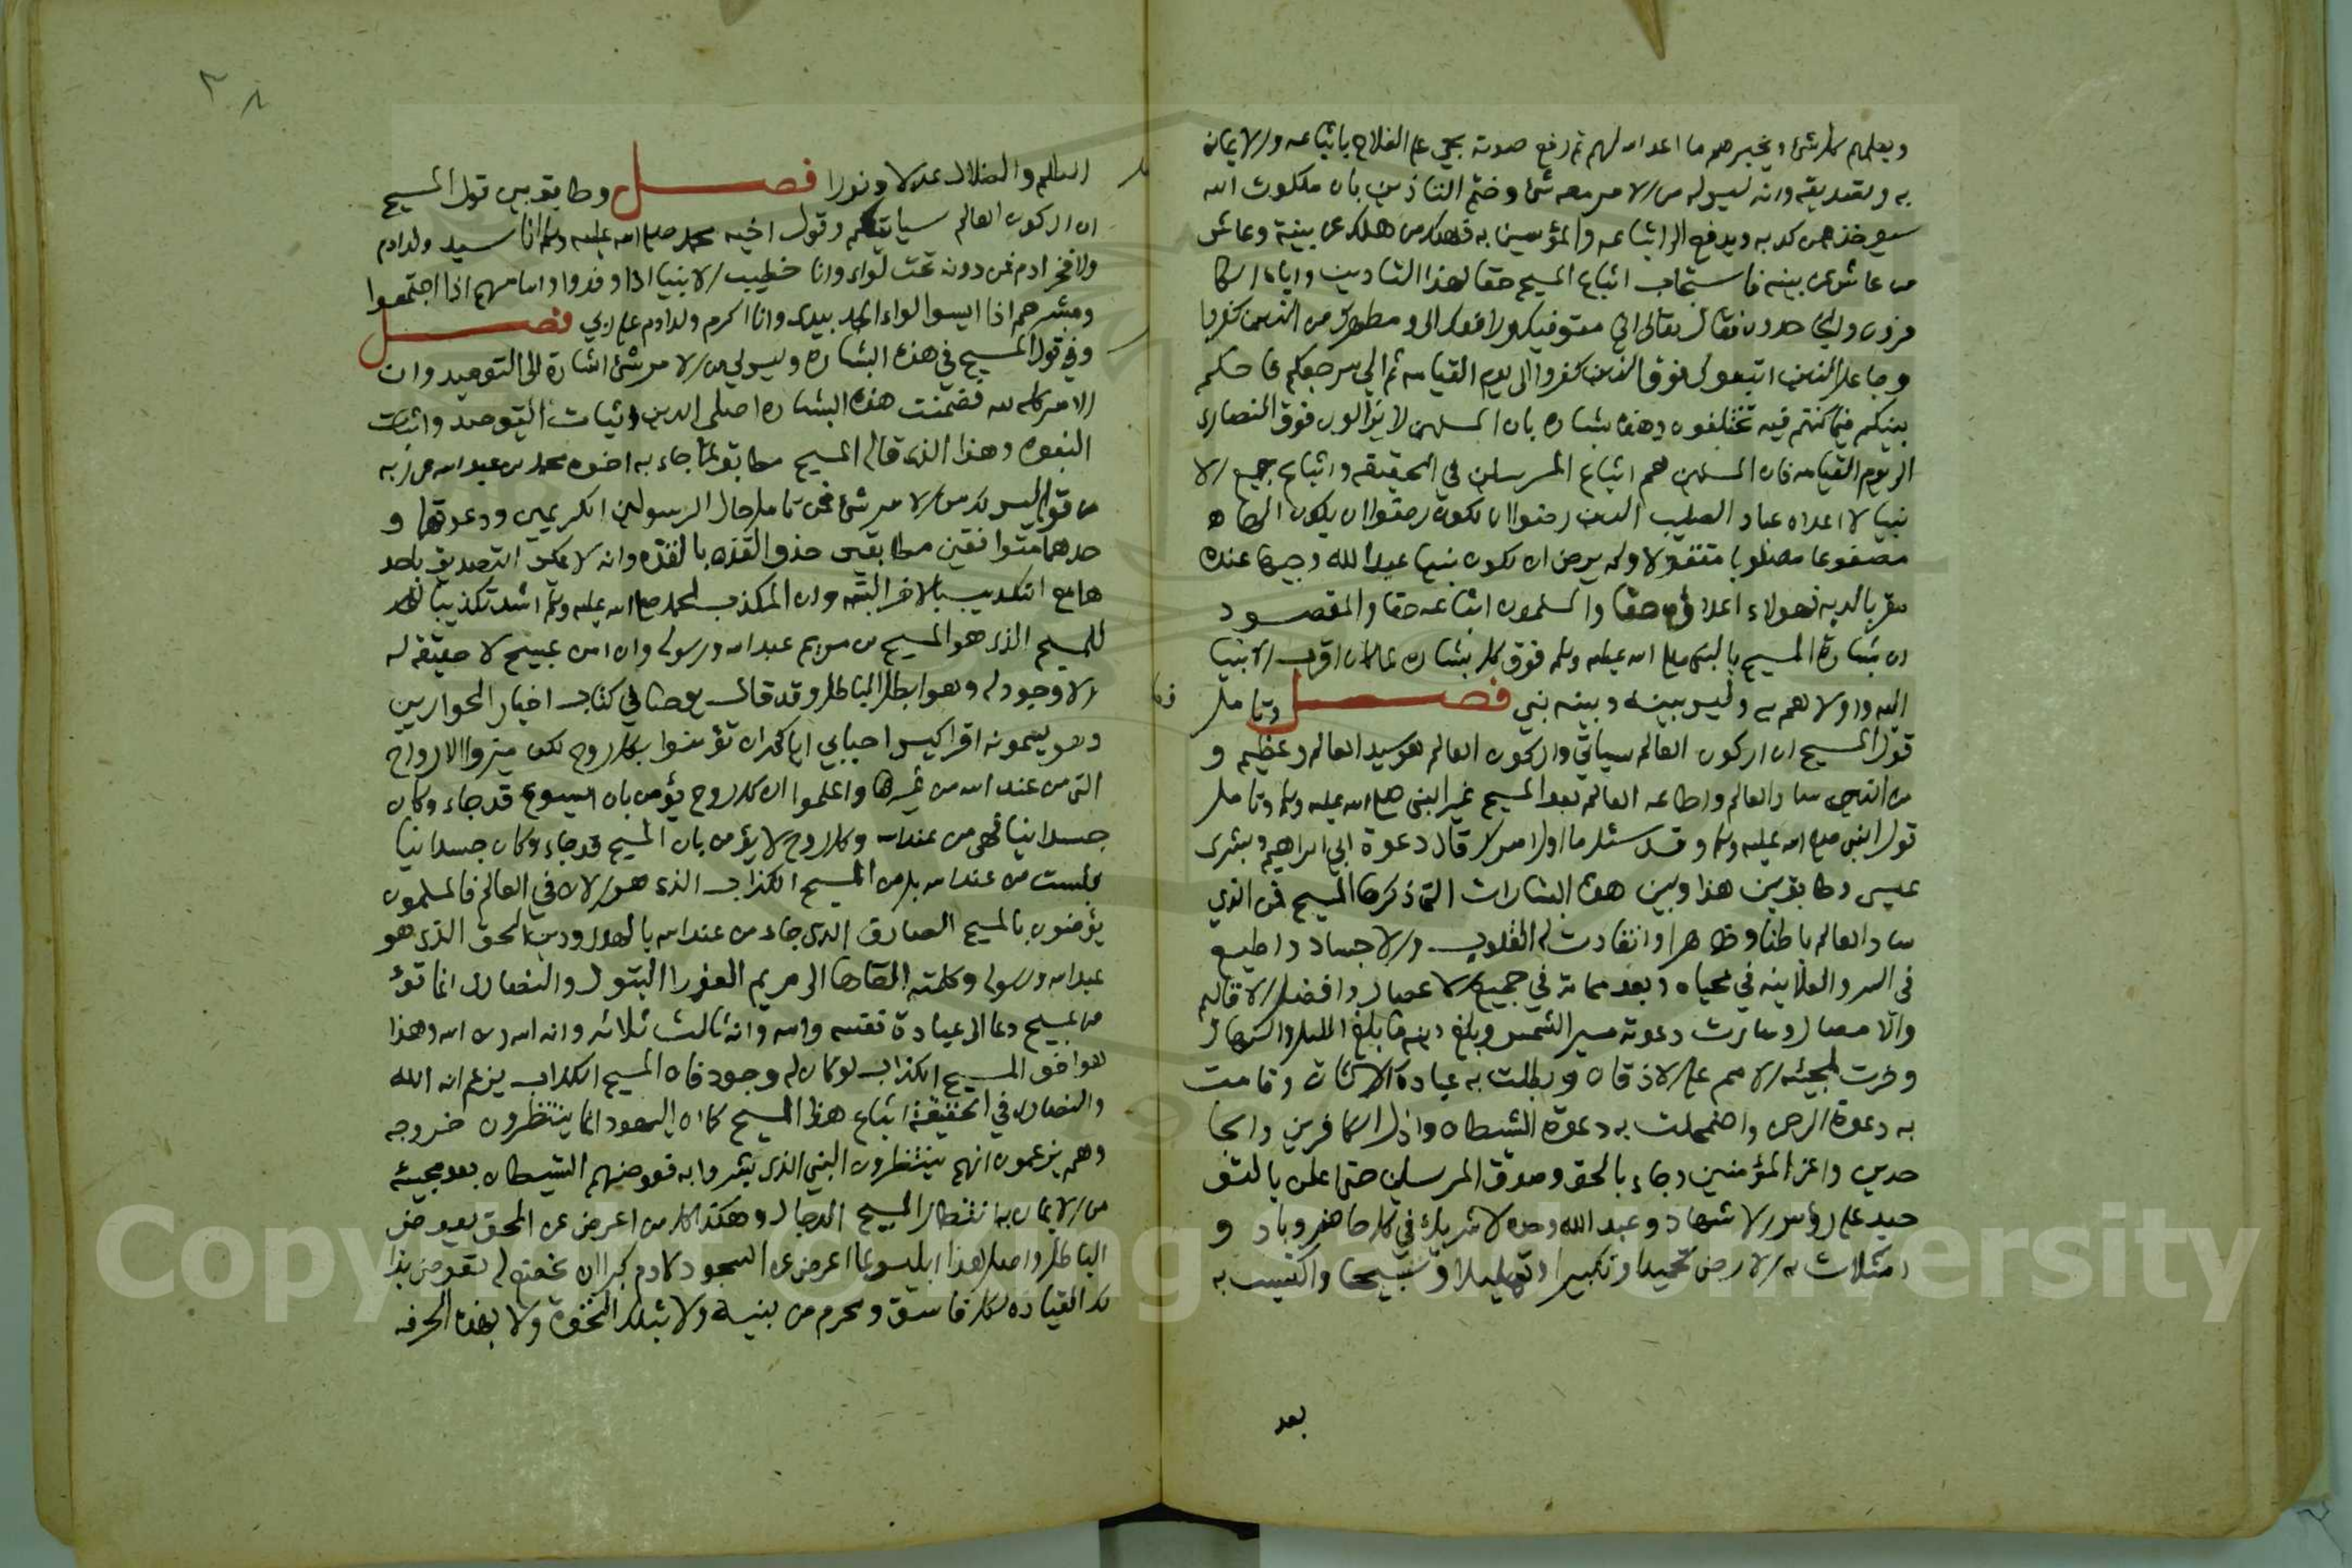 ويعلمهم كل شئ ويخبرهم ما اعد الله لهم ثم رفع صوته بحي على الفلاح باتباعه والايمان
به وتصديقه وانه ليس له من الامر معه شئ وختم التاذين بان ملكوت الله
سيوخذ ممن كذبه ويدفع الى اتباعه والمؤمنين به فهلك من هلك عن بينة وعاش
من عاش عن بينه فاستجاب اتباع المسيح حقا لهذا التاذين واباه الكا
فرون والجاحدون فقال تعالى اني متوفيك ورافعك الي ومطهرك من الذين كفروا
وجاعل الذين اتبعوك فوق الذين كفروا الى يوم القيامه ثم الي مرجعكم فاحكم
بينكم فيما كنتم فيه تختلفون وهذه بشاره بان المسلمين لا يزالون فوق النصارى
الى يوم القيامه فان المسلمين هم اتباع المرسلين في الحقيقه واتباع جميع الا
نبيا لا اعداه عباد الصليب الذين رضوا ان يكون الها
مصفوعا مصلوبا مقتولا ولم يرضوا ان يكون نبيا عبدا لله وجيها عنده
مقربا لديه فهولاء اعداؤه حقا والمسلمون اتباعه حقا والمقصود
ان بشارة المسيح بالنبي صلى الله عليه وسلم فوق كل بشاره لما كان اقرب الانبيا
اليه واولاهم به وليس بينه وبينه نبي فصل وتامل
قول المسيح ان اركون العالم سياتي واركون العالم هو سيد العالم وعظيم و
من الذي ساد العالم واطاعه العالم بعد المسيح غير النبي صلى الله عليه وسلم وتامل
قول النبي صلى الله عليه وسلم وقد سئل ما اول امرك قال دعوة ابي ابراهيم وبشرى
عيسى وطابق بين هذا وبين هذه البشارات التي ذكرها المسيح فمن الذي
ساد العالم باطنا وظاهرا وانقادت له القلوب والاجساد واطيع
في السر والعلانيه في محياه وبعد مماته في جميع الاعصار وافضل الاقاليم
والامصار وسارت دعوته مسير الشمس وبلغ دينه ما بلغ الليل والنهار
وخرت لمجيئه الامم على الاذقان وبطلت به عبادة الاوثان وقامت
به دعوة الرحمن واضمحلت به دعوة الشيطان واذل الكافرين والجا
حدين واعز المؤمنين وجاء بالحق وصدق المرسلين حتى اعلن بالتو
حيد على رؤس الاشهاد وعبد الله وحده لا شريك له في كل حاضر وباد و
امتلات به الارض تحميدا وتكبيرا وتهليلا وتسبيحا واكتست به
بعد
الظلم والضلال عدلا ونورا فصل وطابق بين قول المسيح
ان اركون العالم سياتيكم وقول اخيه محمد صلى الله عليه وسلم انا سيد ولد ادم
ولا فخر ادم فمن دونه تحت لواءي وانا خطيب الانبيا اذا وفدوا وامامهم اذا اجتمعوا
ومبشرهم اذا ايسوا لواء الحمد بيدي وانا اكرم ولد ادم على ربي فصل
وفي قول المسيح في هذه البشاره وليس لي من الامر شئ اشارة الى التوحيد وان
الامر كله لله فتضمنت هذه البشاره اصلي الدين اثبات التوحيد واثبات
النبوه وهذا الذي قاله المسيح مطابق لما جاء به اخوه محمد بن عبد الله عن ربه
من قوله ليس لك من الامر شئ فمن تامل حال الرسولين الكريمين ودعوتهما و
جدهما متوافقين متطابقين حذو القذه بالقذه وانه لا يمكن التصديق باحد
هما مع التكذيب بالاخر البته وان المكذب لمحمد صلى الله عليه وسلم اشد تكذيبا
للمسيح الذي هو المسيح بن مريم عبد الله ورسوله وان امن بمسيح لا حقيقه له
ولا وجود له وهو ابطل الباطل وقد قال يوحنا في كتاب اخبار الحواريين
وهو يسمونه افراكيس احبابي اياكم ان تؤمنوا بكل روح لكن ميزوا الارواح
التي من عند الله من غيرها واعلموا ان كل روح يؤمن بان ايسوع قد جاء وكان
جسدانيا فهي من عند الله وكل روح لا يؤمن بان المسيح قد جاء وكان جسدانيا
فليست من عند الله بل من المسيح الكذاب الذي هو الان في العالم فالمسلمون
يؤمنون بالمسيح الصادق الذي جاء من عند الله بالهدى ودين الحق الذي هو
عبد الله ورسوله وكلمته القاها الى مريم العذرا البتول والنصارى انما تؤ
من بمسيح دعا الى عبادة نفسه وامه وانه ثالث ثلاثه وانه الله وبن الله وهذا
هو اخو المسيح الكذاب لو كان له وجود فان المسيح الكذاب يزعم انه الله
والنصارى في الحقيقة اتباع هذا المسيح كما ان اليهود انما ينتظرون خروجه
وهم يزعمون انهم ينتظرون النبي الذي بشروا به فعوضهم الشيطان بعد مجيئه
من الايمان به انتظار المسيح الدجال وهكذا كل من اعرض عن الحق يعوض
الباطل واصل هذا ابليس لما اعرض عن السجود لادم كبرا ان يخضع له تعوض بذا
لك القياده لكل فاسق ومجرم من بنيه ولا بتلك النخوة ولا بهذه الحرفه